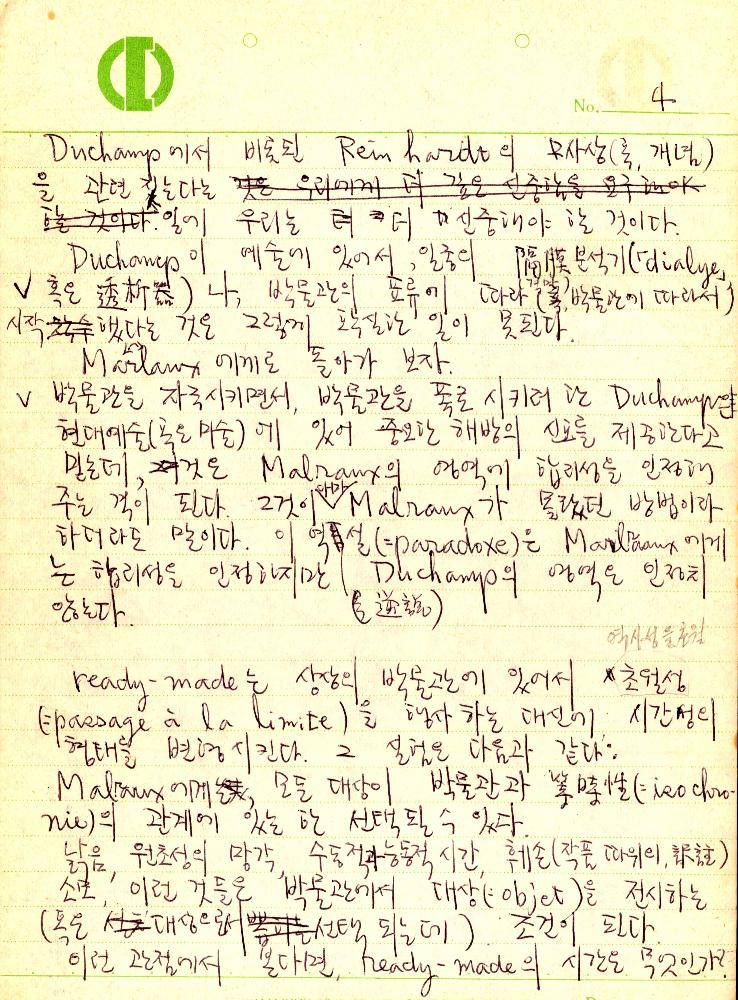 No. 4
Duchamp에서 비롯된 Reinhardt의 무사상(혹, 개념)
을 관련 짓는다는
일에 우리는 더 신중해야 할 것이다.
Duchamp이 예술에 있어서, 일종의 隔膜분석기(dialyse,
혹은 透析器)나, 박물관의 표류에 따라(혹, 박물관에 따라서)
시작했다는 것은 그렇게 확실한 일이 못된다.
Malraux에게로 돌아가 보자.
박물관을 자극시키면서, 박물관을 폭로시키려는 Duchamp은
현대예술(혹은 미술)에 있어 중요한 해방의 신호를 제공한다고
믿는데, 이것은 Malraux의 영역에 합리성을 인정해
주는 격이 된다. 그것이 아마 Malraux가 몰랐던 방법이라
하더라도 말이다. 이 역설(=paradoxe)은 Malraux에게
는 합리성을 인정하지만 Duchamp의 영역은 인정치
않는다. (혹 逆說)
역사성을 초월
ready-made는 상상의 박물관에 있어서 초월성
(=passage à la limite)을 행사하는 대신에 시간성의
형태를 변형시킨다. 그 설명은 다음과 같다:
Malraux에게는, 모든 대상이 박물관과 等時性(=isochro-
nie)의 관계에 있는 한 선택될 수 있다.
낡음, 원초성의 망각, 수동적과 능동적 시간, 훼손(작품 따위의, 訳註)
소모, 이런 것들은 박물관에서 대상(=objet)을 전시하는
(혹은 대상으로서 선택 되는데) 조건이 된다.
이런 관점에서 본다면, ready-made의 시간은 무엇인가?